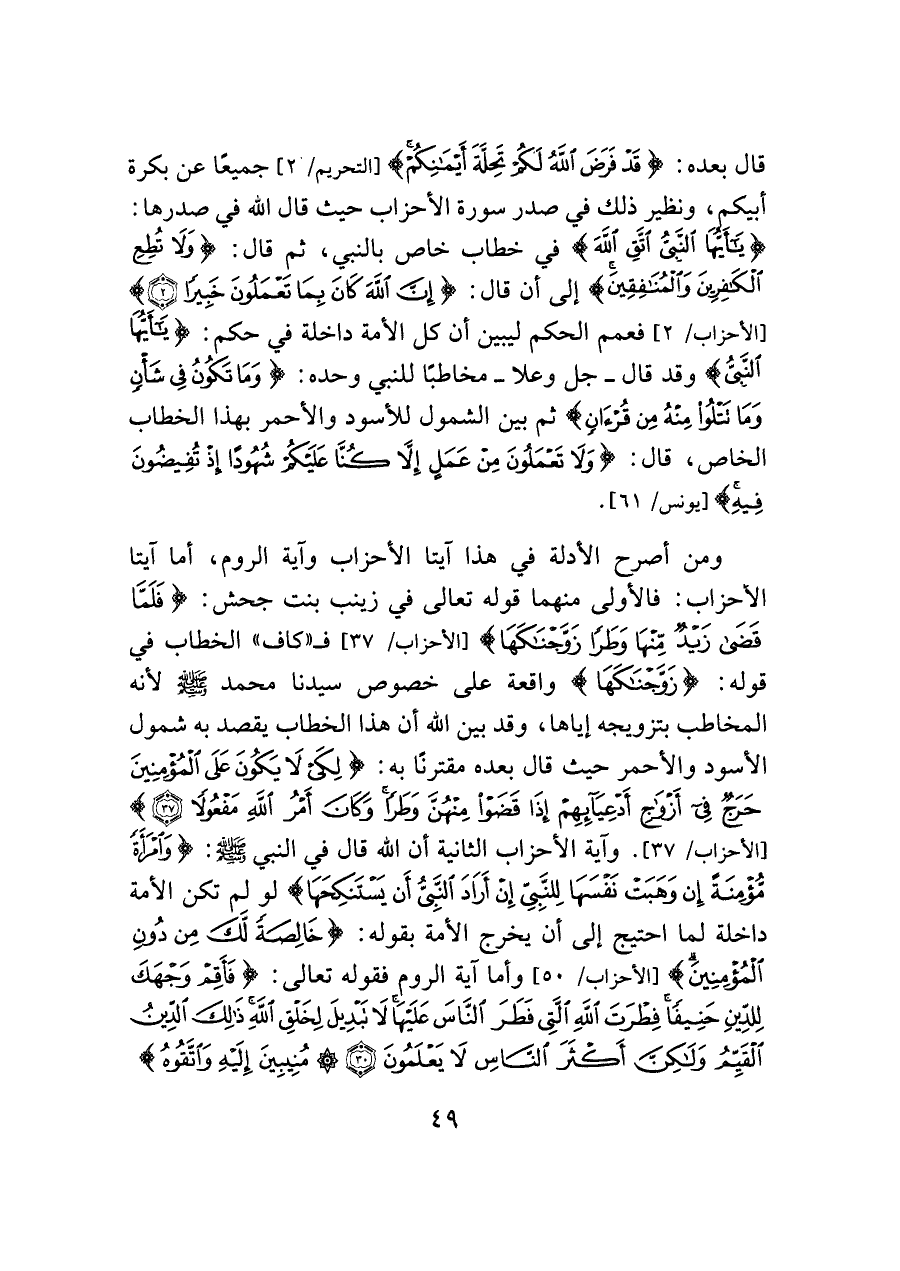 قال بعده: ﴿ قَدْ فَرَضَ ٱللَّهُ لَكُمْ تَحِلَّةَ أَيْمَٰنِكُمْۚ﴾ [التحريم/ ٢] جميعًا عن بكرة
أبيكم، ونظير ذلك في صدر سورة الأحزاب حيث قال الله في صدرها:
﴿ يَٰٓأَيُّهَا ٱلنَّبِىُّ ٱتَّقِ ٱللَّهَ ﴾ في خطاب خاص بالنبي، ثم قال: ﴿ وَلَا تُطِعِ
ٱلْكَٰفِرِينَ وَٱلْمُنَٰفِقِينَۚ﴾ إلى أن قال: ﴿ إِنَّ ٱللَّهَ كَانَ بِمَا تَعْمَلُونَ خَبِيرًا ٢﴾
[الأحزاب/ ٢] فعمم الحكم ليبين أن كل الأمة داخلة في حكم: ﴿ يَٰٓأَيُّهَا
ٱلنَّبِىُّ ﴾ وقد قال ـ جل وعلا ـ مخاطبًا للنبي وحده: ﴿ وَمَا تَكُونُ فِى شَأْنٍ
وَمَا تَتْلُوا۟ مِنْهُ مِن قُرْءَانٍ﴾ ثم بين الشمول للأسود والأحمر بهذا الخطاب
الخاص، قال: ﴿ وَلَا تَعْمَلُونَ مِنْ عَمَلٍ إِلَّا كُنَّا عَلَيْكُمْ شُهُودًا إِذْ تُفِيضُونَ
فِيهِۚ﴾ [يونس/ ٦١].
ومن أصرح الأدلة في هذا آيتا الأحزاب وآية الروم، أما آيتا
الأحزاب: فالأولى منهما قوله تعالى في زينب بنت جحش: ﴿ فَلَمَّا
قَضَىٰ زَيْدٌ مِّنْهَا وَطَرًا زَوَّجْنَٰكَهَا ﴾ [الأحزاب/ ٣٧] فـ«كاف» الخطاب في
قوله: ﴿ زَوَّجْنَٰكَهَا ﴾ واقعة على خصوص سيدنا محمد ﷺ لأنه
المخاطب بتزويجه إياها، وقد بين الله أن هذا الخطاب يقصد به شمول
الأسود والأحمر حيث قال بعده مقترنًا به: ﴿ لِكَىْ لَا يَكُونَ عَلَى ٱلْمُؤْمِنِينَ
حَرَجٌ فِىٓ أَزْوَٰجِ أَدْعِيَآئِهِمْ إِذَا قَضَوْا۟ مِنْهُنَّ وَطَرًاۚ وَكَانَ أَمْرُ ٱللَّهِ مَفْعُولًا ٣٧ ﴾
[الأحزاب/ ٣٧]. وآية الأحزاب الثانية أن الله قال في النبي ﷺ: ﴿ وَٱمْرَأَةً
مُّؤْمِنَةً إِن وَهَبَتْ نَفْسَهَا لِلنَّبِىِّ إِنْ أَرَادَ ٱلنَّبِىُّ أَن يَسْتَنكِحَهَا﴾ لو لم تكن الأمة
داخلة لما احتيج إلى أن يخرج الأمة بقوله: ﴿ خَالِصَةً لَّكَ مِن دُونِ
ٱلْمُؤْمِنِينَۗ﴾ [الأحزاب/ ٥٠] وأما آية الروم فقوله تعالى: ﴿ فَأَقِمْ وَجْهَكَ
لِلدِّينِ حَنِيفًاۚ فِطْرَتَ ٱللَّهِ ٱلَّتِى فَطَرَ ٱلنَّاسَ عَلَيْهَاۚ لَا تَبْدِيلَ لِخَلْقِ ٱللَّهِۚ ذَٰلِكَ ٱلدِّينُ
ٱلْقَيِّمُ وَلَٰكِنَّ أَكْثَرَ ٱلنَّاسِ لَا يَعْلَمُونَ ٣٠ ۞ مُنِيبِينَ إِلَيْهِ وَٱتَّقُوهُ ﴾
٤٩